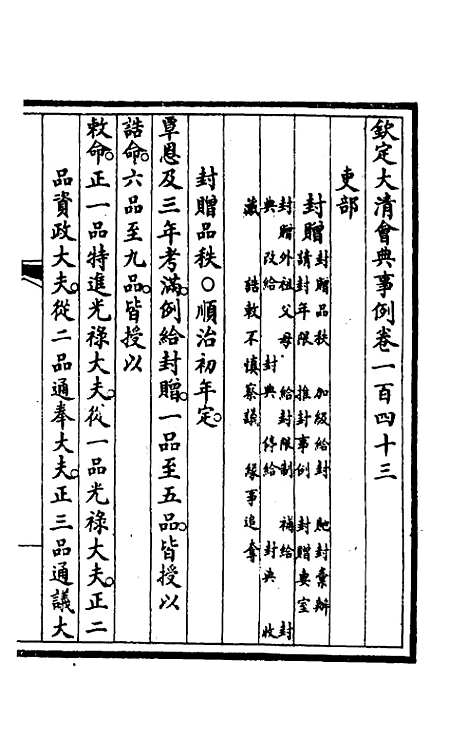 欽定大清會典事例卷一百四十三
吏部
封贈 封贈品秩 加級給封 貤封彙辦
請封年限 推封事例 封贈妻室
封贈外祖父母 給封限制 補給 封
典 改給 封典 停給 封典 收
藏 誥敕不慎察議 緣事追奪
封贈品秩○順治初年定。
覃恩及三年考滿。例給封贈。一品至五品。皆授以
誥命。六品至九品。皆授以
敕命。正一品特進光祿大夫。從一品光祿大夫。正二
品資政大夫。從二品通奉大夫。正三品通議大